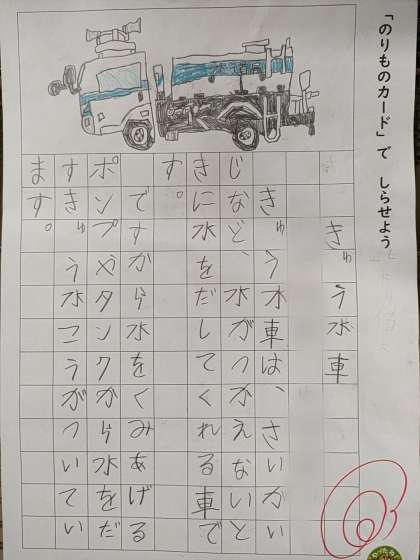 「のりものカード」で しらせよう
きゅう水車
きゅう水車は、さいがい
じなど、水がつかえないと
きに水をだしてくれる車で
す。
ですから水をくみあげる
ポンプやタンクから水をだ
すきゅう水こうがついてい
ます。